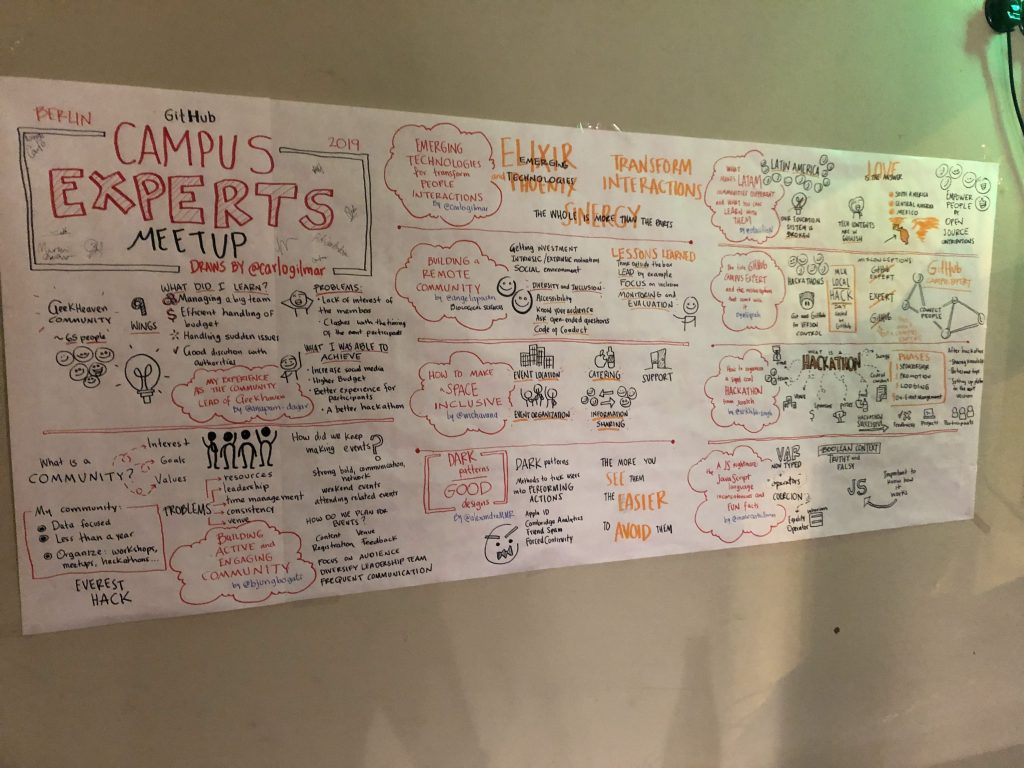 BERLIN
GitHub
2019
CAMPUS
EXPERTS
MEETUP
DRAWS BY @carlogilmar
GeekHeaven
COMMUNITY
~ 65 people
9
WINGS
WHAT DID I LEARN?
Managing a big team
$ Efficient handling of
budget
Handling sudden issues
✓ Good discution with
authorities
PROBLEMS:
• Lack of interest of
the members
• Clashes with the timing
of the most participants
WHAT I WAS ABLE TO
ACHIEVE
• Increase social media
• Higher Budget
• Better experience for
participants
• A better hackathon
MY EXPERIENCE
AS THE COMMUNITY
LEAD OF GeekHaven
What is a
COMMUNITY?
Interest
Goals
Values
My community:
Data focused
Less than a year
Organize: workshops,
meetups, hackathons...
EVEREST
HACK
PROBLEMS
resources
leadership
time management
consistency
venue
BUILDING
ACTIVE and
ENGAGING
COMMUNITY
How did we keep
making events?
Strong bold, communication,
networks
weekend events
attending related events
HOW DO WE PLAN FOR
EVENTS?
Content Venue
Registration Feedback
FOCUS ON AUDIENCE
DIVERSIFY LEADERSHIP TEAM
FREQUENT COMMUNICATION
EMERGING
TECHNOLOGIES
for transform
PEOPLE
INTERACTIONS
by @carlogilmar
ELIXIR
EMERGING
and PHOENIX
TECHNOLOGIES
TRANSFORM
INTERACTIONS
SINERGY
THE WHOLE IS MORE THAN THE PARTS
BUILDING A
REMOTE
COMMUNITY
Getting INVESTMENT
INTRINSIC/EXTRINSIC motivation
SOCIAL environment
DIVERSITY and INCLUSION:
Accessibility
Know your audience
Ask open-ended questions
Code of Conduct
LESSONS LEARNED
Think outside the box
LEAD by example
FOCUS on inclusion
MONITORING and
EVALUATION
HOW TO MAKE
A SPACE
INCLUSIVE
EVENT IDEATION
CATERING
SUPPORT
EVENT ORGANIZATION
INFORMATION
SHARING
DARK
patterns
GOOD
designs
DARK patterns
Methods to trick users
into PERFORMING
ACTIONS
Apple ID
Cambridge Analytica
Friend Spam
Forced Continuity
THE MORE YOU
SEE THEM
THE EASIER
TO AVOID THEM
WHAT
MAKES LATAM
COMMUNITIES DIFFERENT
AND WHAT YOU CAN
LEARN WITH
THEM
LATIN AMERICA
OUR EDUCATION
SYSTEM IS
BROKEN
TECH CONTENTS
ARE IN
ENGLISH
LOVE
IS THE ANSWER
SOUTH AMERICA
CENTRAL AMERICA
MEXICO
EMPOWER
PEOPLE
by
OPEN
SOURCE
CONTRIBUTIONS
The title GITHUB
CAMPUS EXPERT
and the misconceptions
that come with
HACKATHONS
Git and GitHub
for VERSION
CONTROL
MLH
LOCAL
HACK
DAY
MISCONCEPTIONS
GitHub
EXPERT
EXPERT
GitHub
GITHUB
CAMPUS EXPERT
CONNECT
PEOPLE
How to organize
a super cool
HACKATHON
from scratch
HACKATHON
Team
Venue
Sponsors
Prizes
Swags
HACKATHON
SUCCESSFUL
PHASES
SPONSORSHIP
PROMOTION
LODGING
Timelines
Projects
Participants
After hackathon
The JS nightmare:
JavaScript
language
inconsistencies and
FUN facts
VAR
NOT TYPED
operators
COERCION
Equality
Operator
BOOLEAN CONTEXT
TRUTHY and
FALSY
JS
Important to
know how it
works